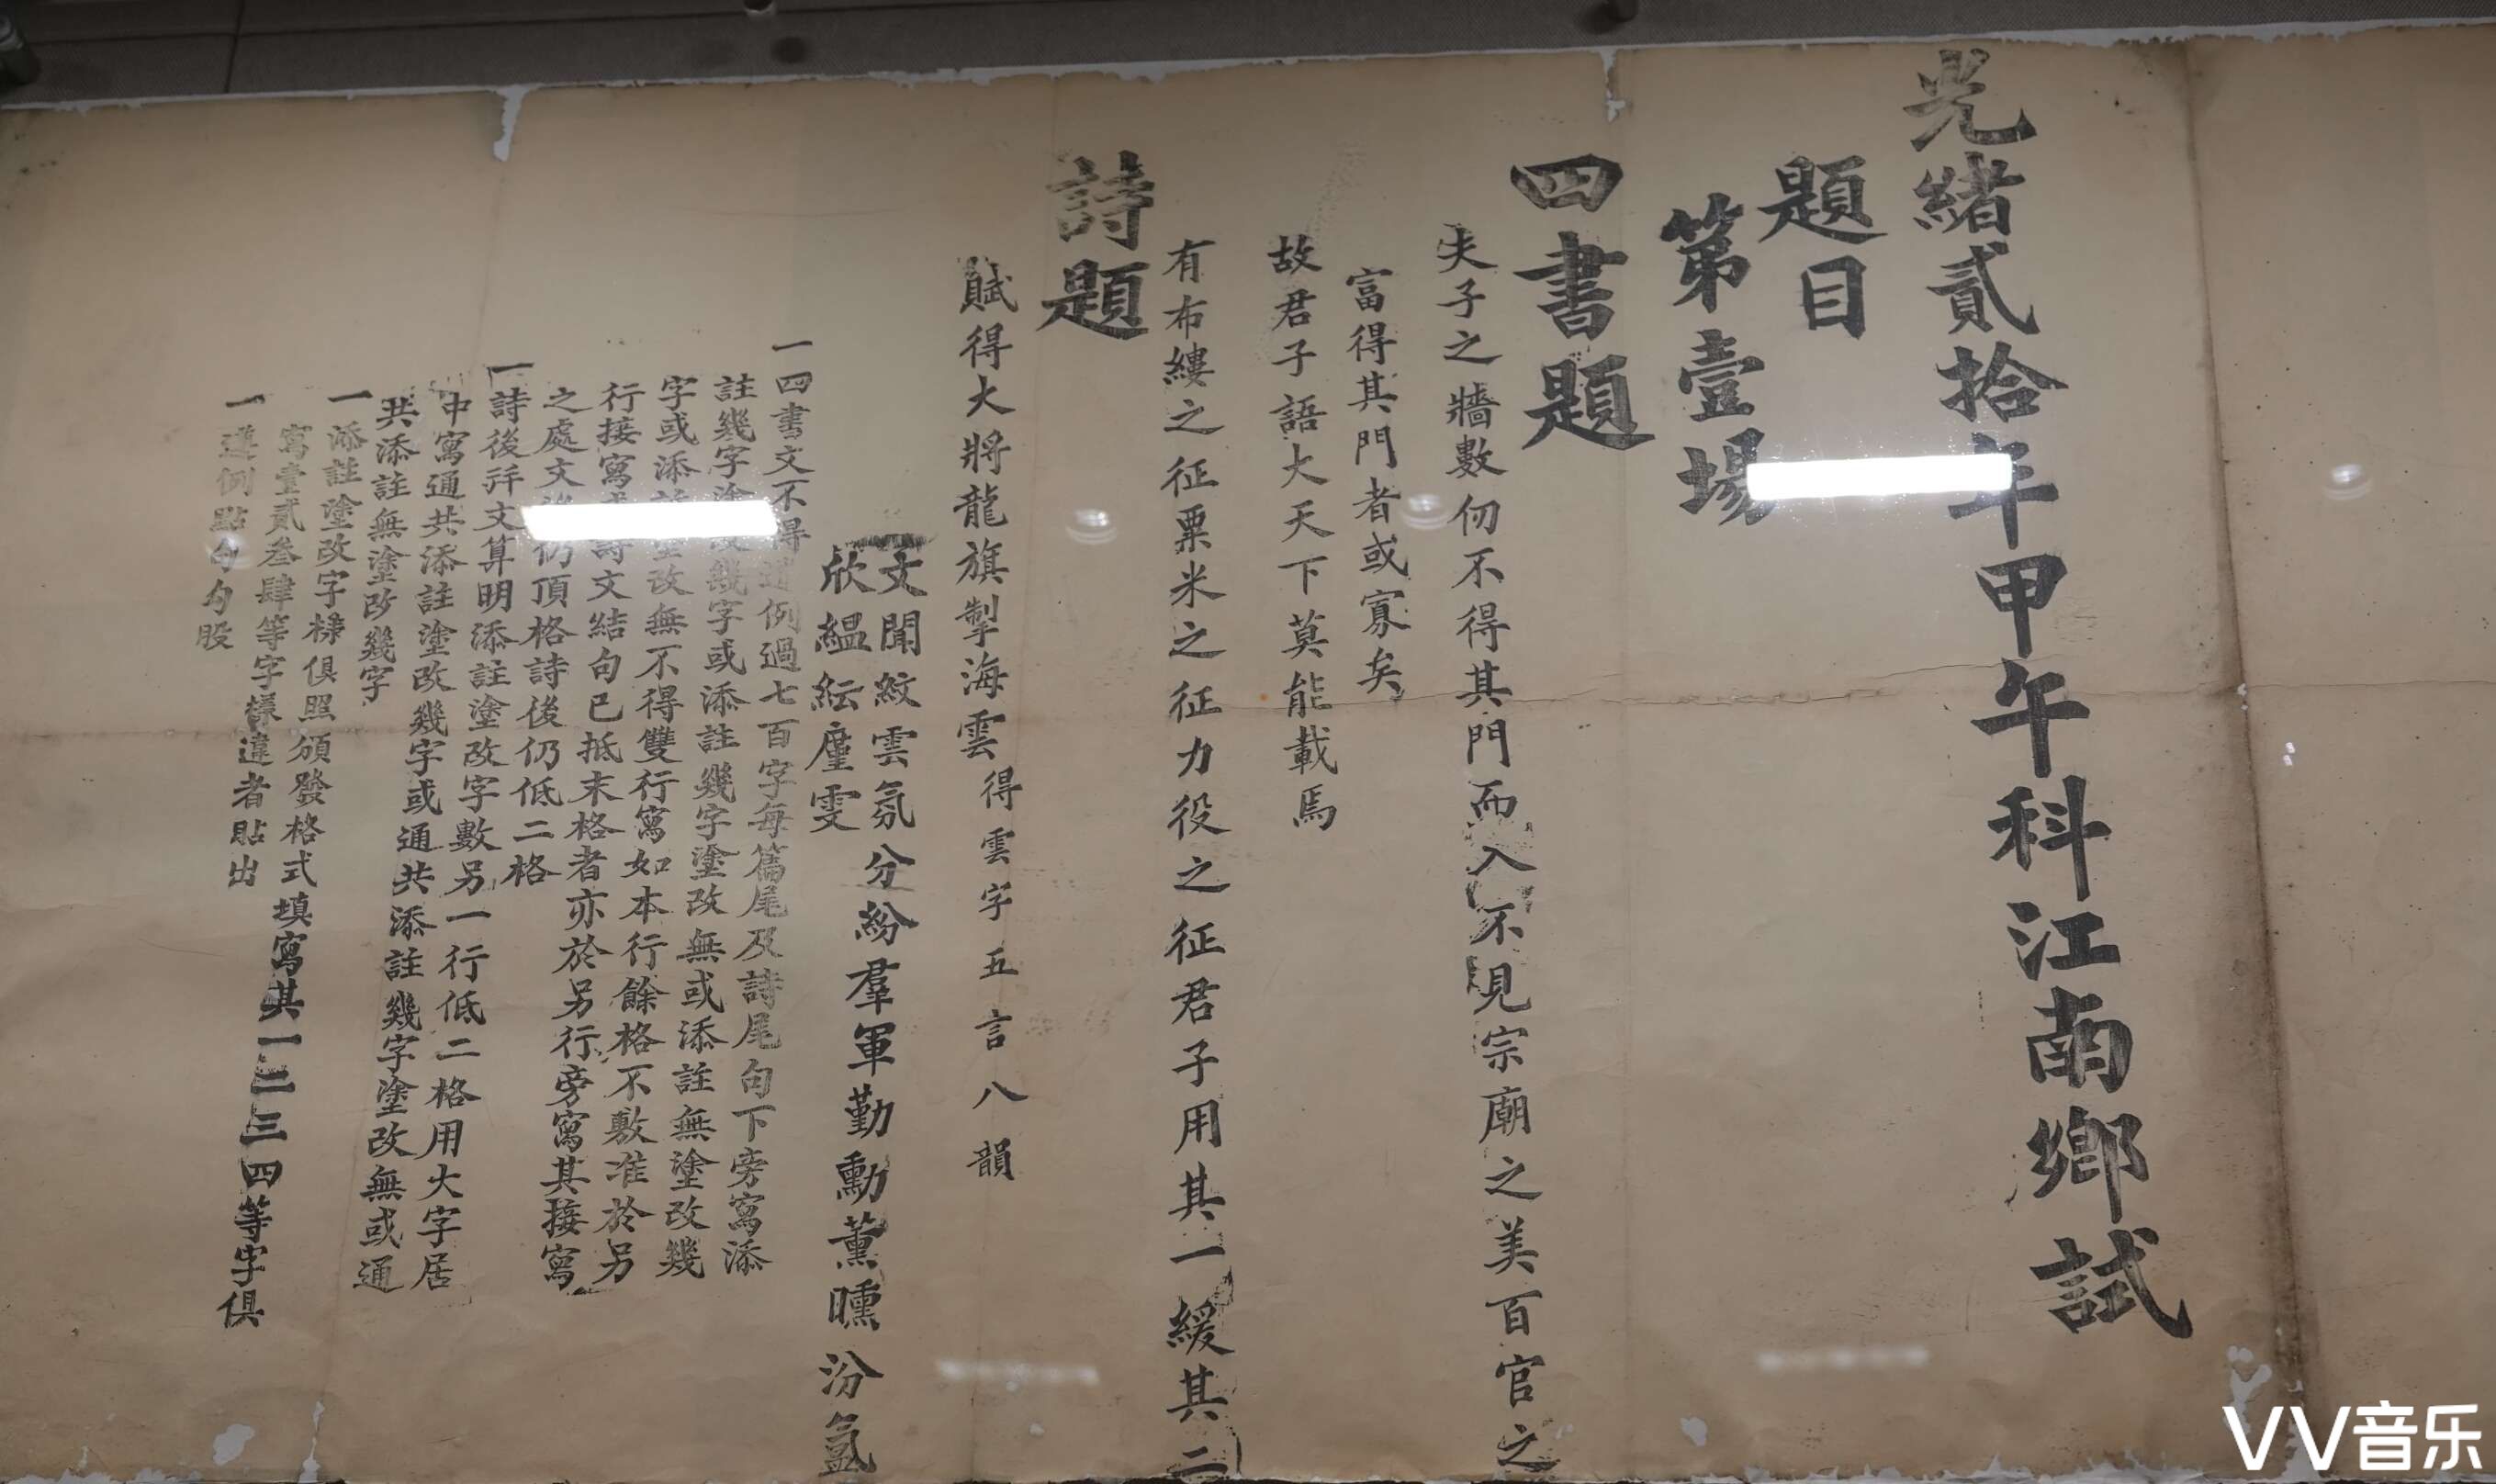 光緒貳拾年甲午科江南鄉試
題目
第壹場
四書題
夫子之牆數仞不得其門而入不見宗廟之美百官之
富得其門者或寡矣
故君子語大天下莫能載焉
有布縷之征粟米之征力役之征君子用其一緩其二
詩題
賦得大將龍旗掣海雲得雲字五言八韻
文聞紋雲氛分紛羣軍勤勳薰曛汾氳
欣縕紜廑雯
一四書文不得違例過七百字每篇尾及詩尾句下旁寫添
註幾字塗改幾字或添註幾字塗改無或添註無塗改幾
字或添註塗改無不得雙行寫如本行餘格不敷准於另
行接寫詩文結句已抵末格者亦於另行旁寫其接寫
之處文後仍頂格詩後仍低二格
一詩後幷文算明添註塗改字數另一行低二格用大字居
中寫通共添註塗改幾字或通共添註幾字塗改無或通
共添註無塗改幾字
一添註塗改字樣俱照頒發格式填寫其一二三四等字俱
寫壹貳叁肆等字樣違者貼出
一遵例點句勾股
VV音乐